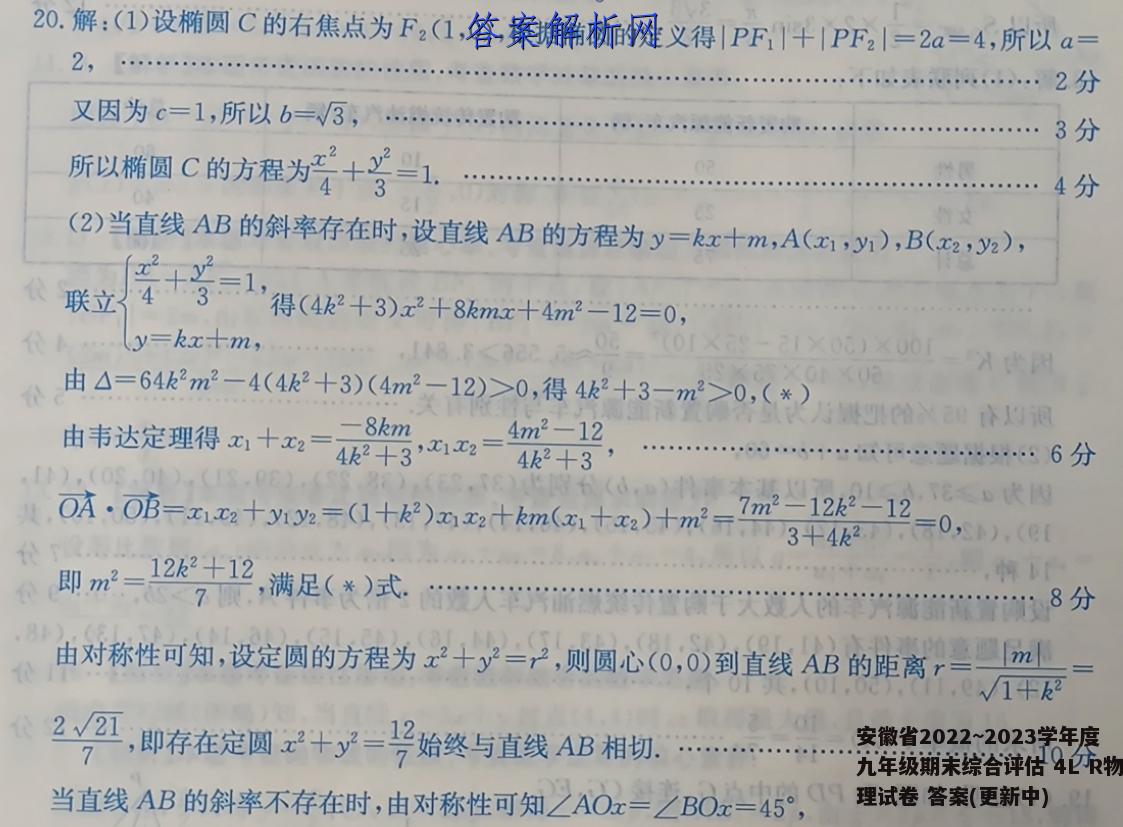 答案解析网
20.解:(1)设椭圆C的右焦点为F₂(1, 的定义得|PF₁|+|PF₂|=2a=4,所以a=
2, …… 2分
又因为c=1,所以b=√3, …… 3分
所以椭圆C的方程为x²/4+y²/3=1. …… 4分
(2)当直线AB的斜率存在时,设直线AB的方程为y=kx+m,A(x₁,y₁),B(x₂,y₂),
联立{x²/4+y²/3=1, y=kx+m, 得(4k²+3)x²+8kmx+4m²-12=0,
由Δ=64k²m²-4(4k²+3)(4m²-12)>0,得4k²+3-m²>0,(*)
由韦达定理得x₁+x₂=-8km/4k²+3,x₁x₂=4m²-12/4k²+3, …… 6分
OA→·OB→=x₁x₂+y₁y₂=(1+k²)x₁x₂+km(x₁+x₂)+m²=7m²-12k²-12/3+4k²=0,
即m²=12k²+12/7,满足(*)式. …… 8分
由对称性可知,设定圆的方程为x²+y²=r²,则圆心(0,0)到直线AB的距离r=|m|/√1+k²=
2√21/7,即存在定圆x²+y²=12/7始终与直线AB相切. …… 10分
当直线AB的斜率不存在时,由对称性可知∠AOx=∠BOx=45°,
安徽省2022~2023学年度
九年级期末综合评估 4L R物
理试卷 答案(更新中)